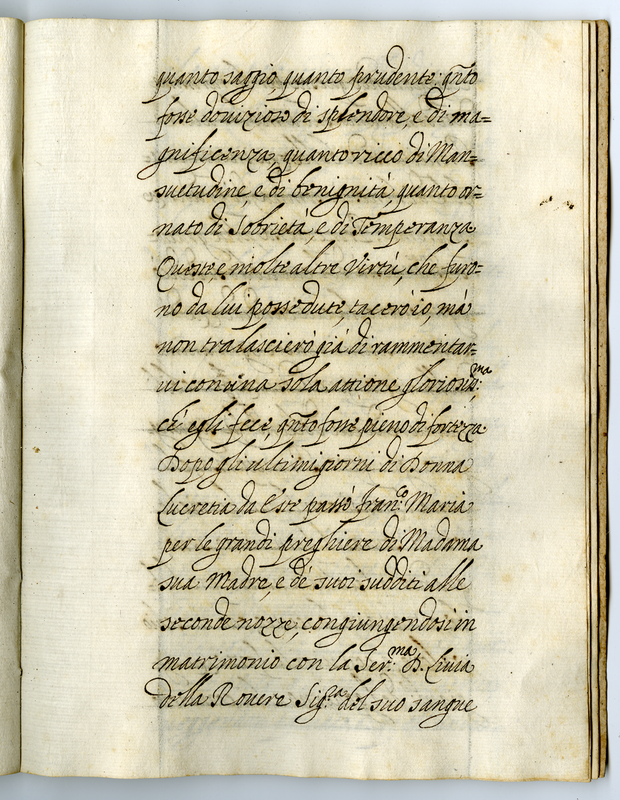 quanto saggio, quanto prudente, q̃nto
fosse dovizioso di splendore, e di ma=
gnificenza, quanto ricco di Man=
suetudine, e di benignità, quanto or=
nato di Sobrietà, e di Temperanza
Queste, e molte altre Virtù, che furo=
no da lui possedute, tacerò io, mà
non tralascierò già di rammentar=
ui con una sola attione gloriosis:ma
cħ egli fece, q̃nto fosse pieno di fortezza.
Dopo gli ultimi giorni di Donna
Lucretia da Este passò Fran:co Maria
per le grandi preghiere di Madama
sua Madre, e de' suoi sudditi alle
seconde nozze, congiungendosi in
matrimonio con la Ser:ma D. Livia
della Rouere Sig:ra del suo sangue